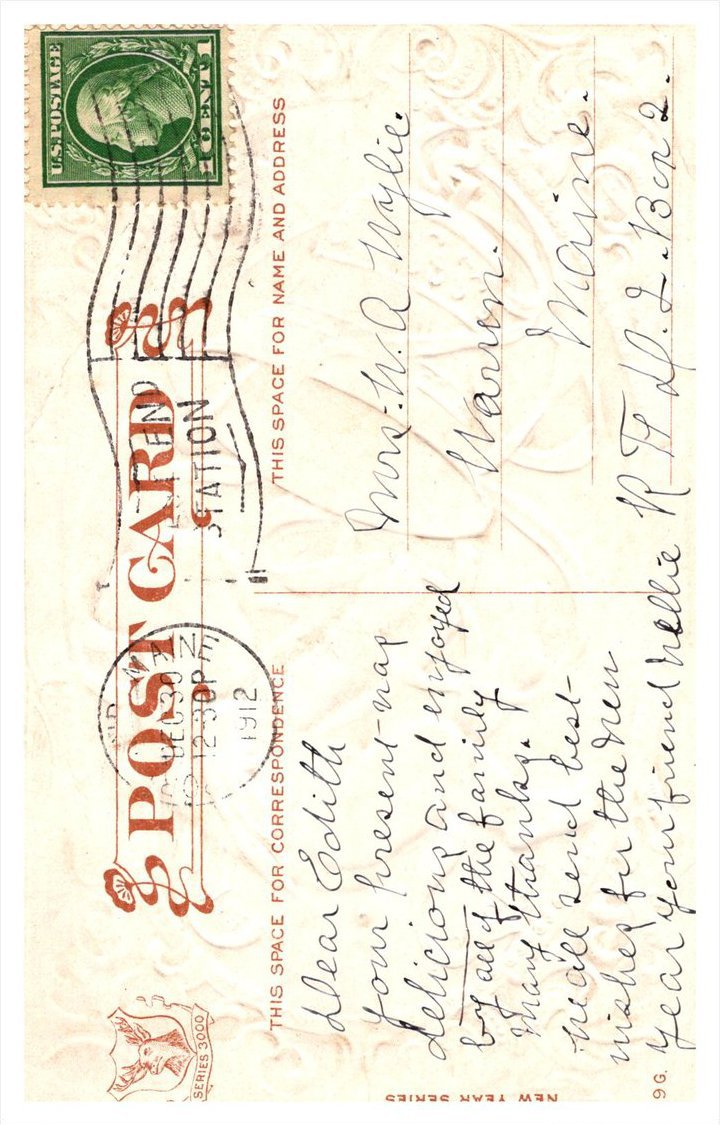 POST CARD
SERIES 3000
U.S. POSTAGE
1 CENT 1
DEC 30
12-30P
1912
END
STATION
THIS SPACE FOR CORRESPONDENCE
THIS SPACE FOR NAME AND ADDRESS
Dear Edith
your present was
delicious and enjoyed
by all of the family
many thanks.
We all send best
wishes for the New
year your friend Nellie
Mrs. N. A. Wylie.
Warren.
Maine.
R F D. 2. Box 2.
NEW YEAR SERIES
9 G.